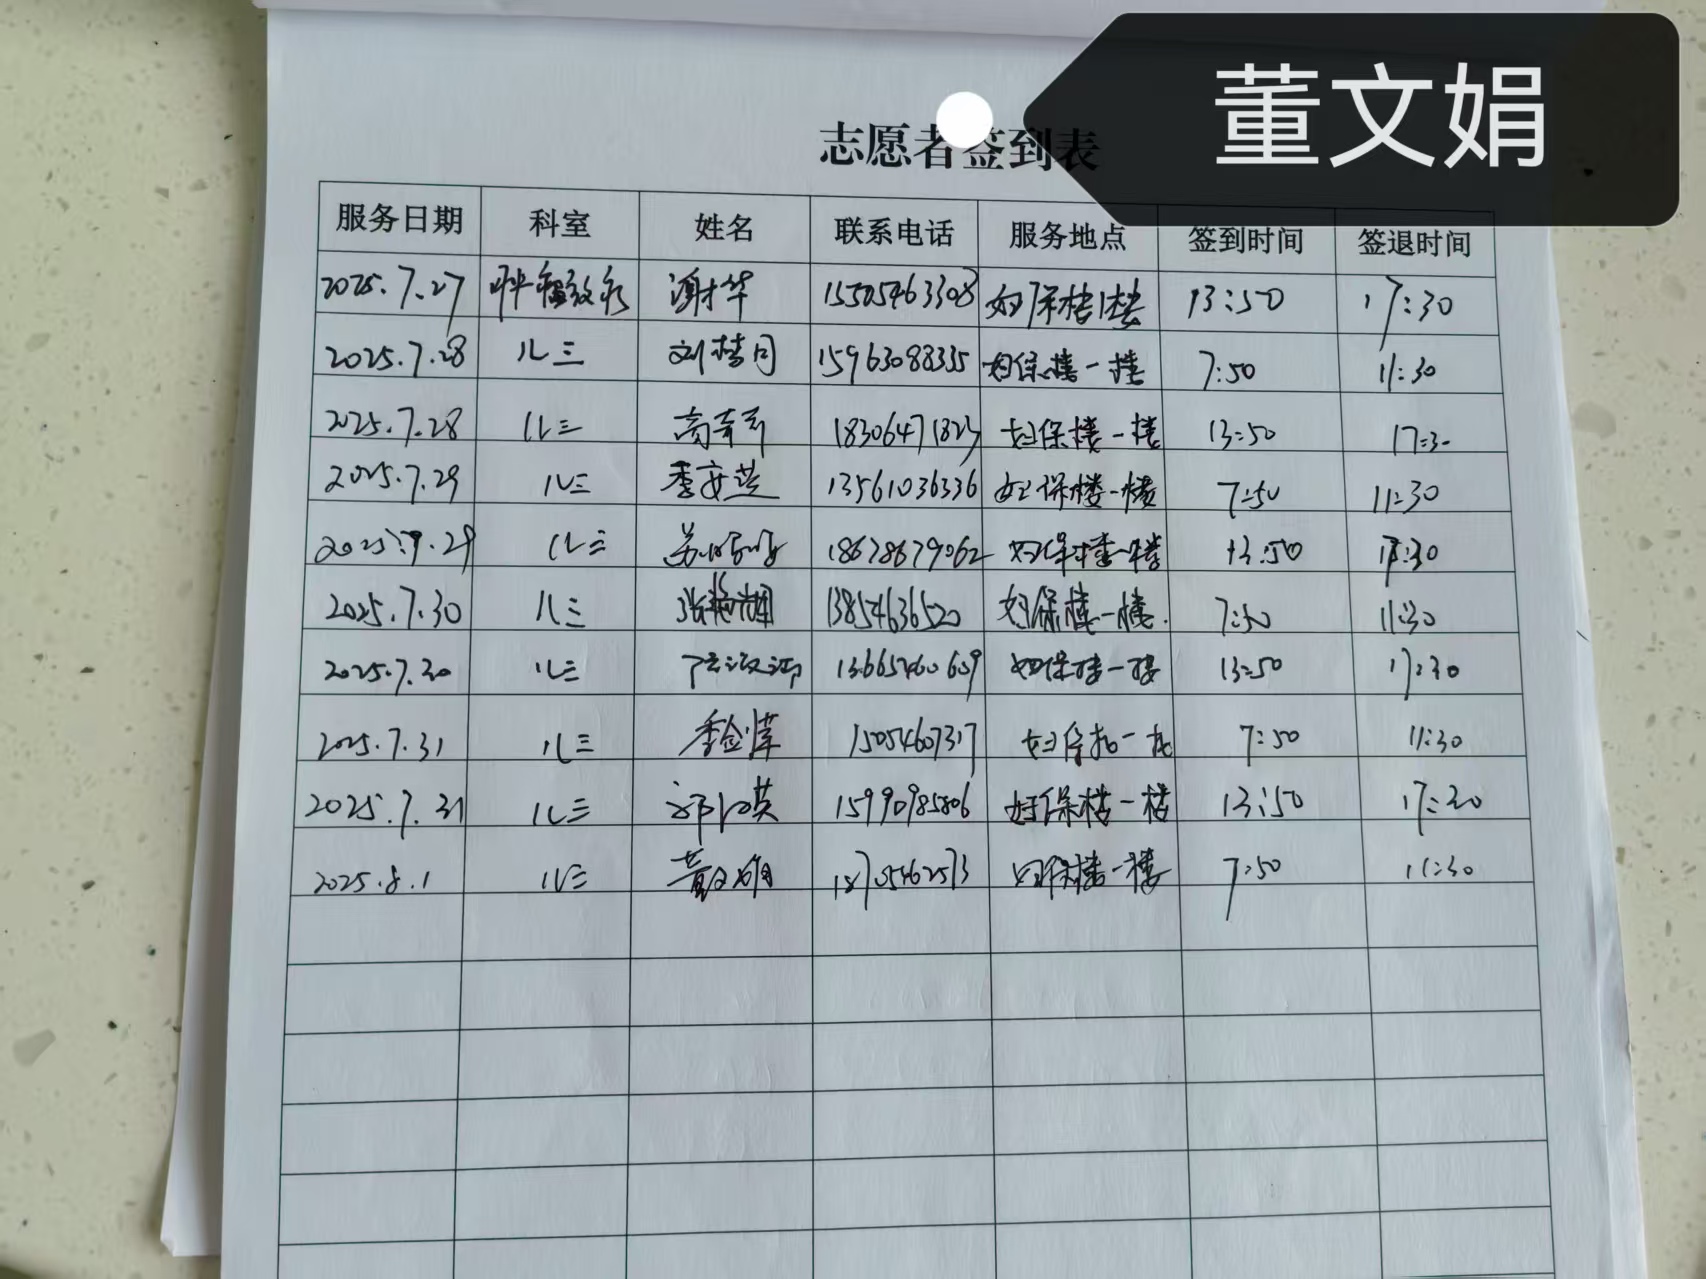 董文娟
志愿者签到表
服务日期 科室 姓名 联系电话 服务地点 签到时间 签退时间
2025.7.27 谢华 15505463308 妇保楼1楼 13:50 17:30
2025.7.28 儿三 刘梦月 15963088335 妇保楼一楼 7:50 11:30
2025.7.28 儿三 18306471823 妇保楼一楼 13:50 17:30
2025.7.29 儿三 季安芝 13561036336 妇保楼一楼 7:50 11:30
2025.7.29 儿三 18678679062 妇保楼一楼 13:50 17:30
2025.7.30 儿三 13854636520 妇保楼一楼. 7:50 11:30
2025.7.30 儿三 13665460609 妇保楼一楼 13:50 17:30
2025.7.31 儿三 15054607317 7:50 11:30
2025.7.31 儿三 15990985806 妇保楼一楼 13:50 17:30
2025.8.1 儿三 董文娟 18705462573 妇保楼一楼 7:50 11:30